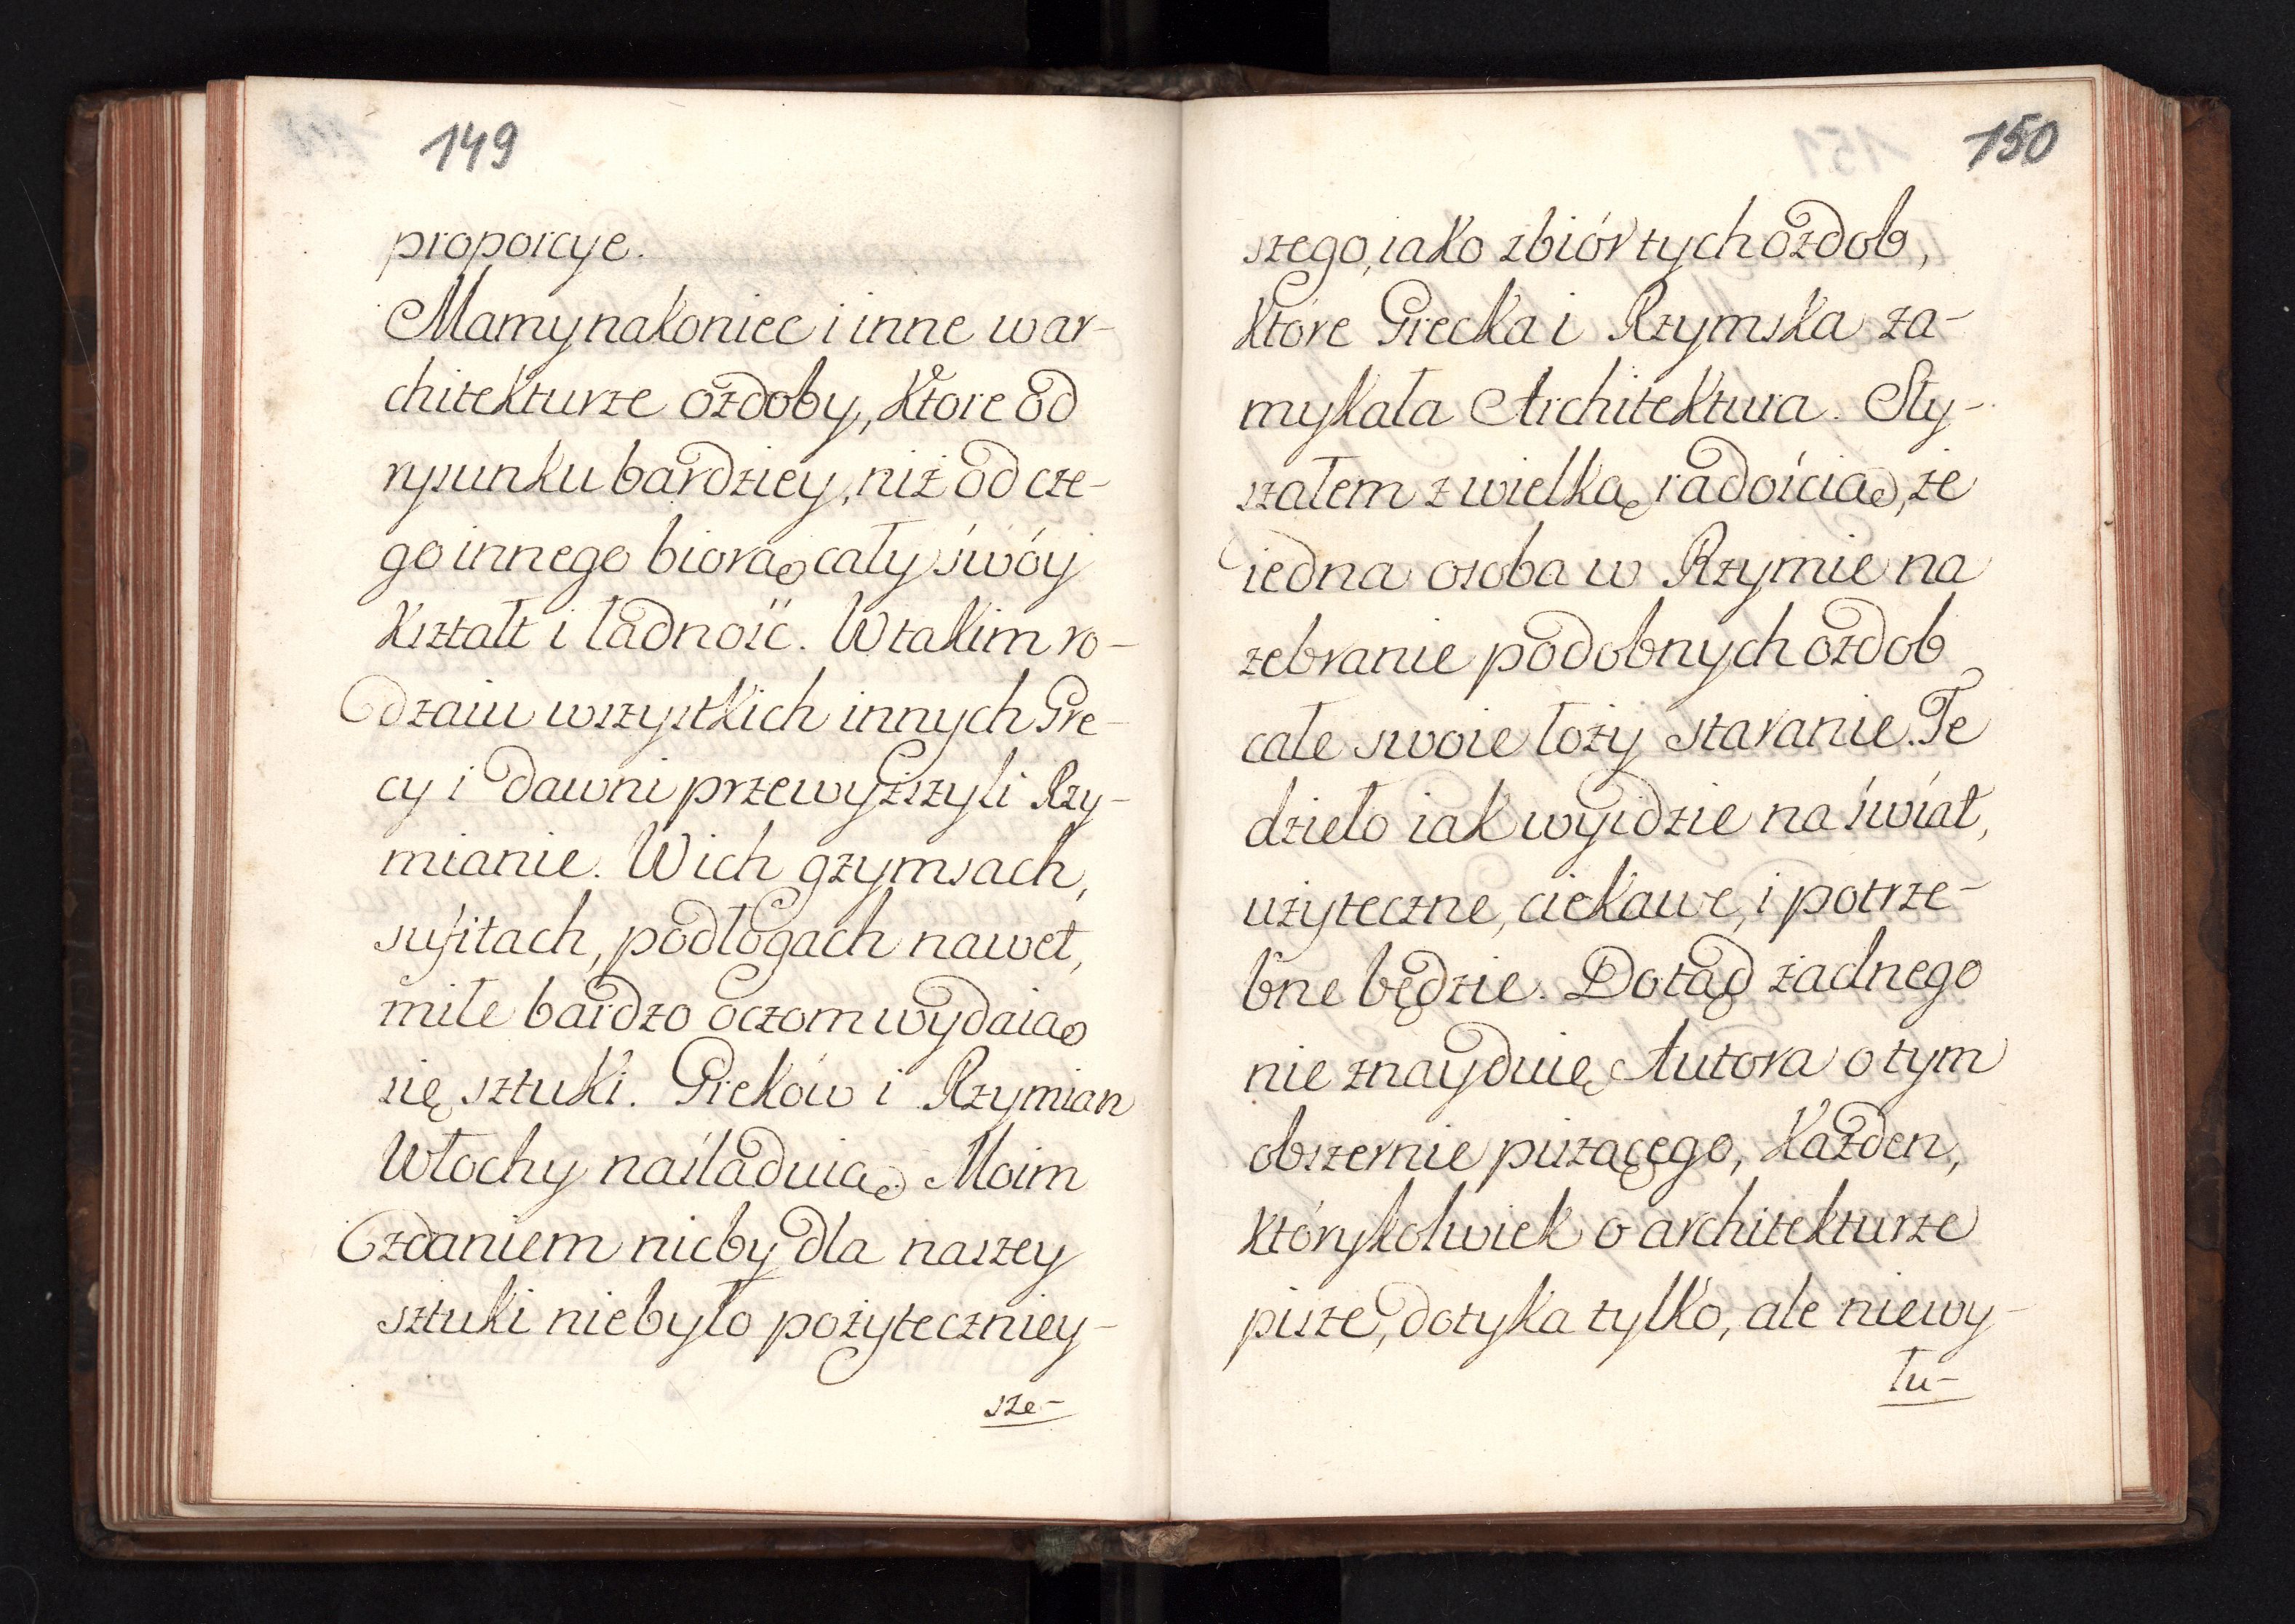 149
proporcye.
Mamy nakoniec i inne w ar-
chitekturze ozdoby, Ktore od
rysunku bardziey, niż od cze-
go innego biorą cały swóy
Kształt i ładność. W takim ro-
dzaiu wszystkich innych Gre-
cy i dawni przewyższyli Rzy-
mianie. W ich gzymsach,
sufitach, podłogach nawet,
miłe bardzo oczom wydaią
się sztuki. Greków i Rzymian
Włochy naśladuią. Moim
zdaniem nicby dla naszey
sztuki niebyło pożyteczniey-
sze-
150
szego, iako zbiór tych ozdob,
Ktore Grecka i Rzymska za-
mykała Architektura. Sły-
szałem z wielką radością, że
iedna osoba w Rzymie na
zebranie podobnych ozdob
całe swoie łoży staranie. Te
dzieło iak wyidzie na świat,
użyteczne, ciekawe, i potrze-
bne będzie. Dotąd żadnego
nie znayduię Autora o tym
obszernie piszącego, Każden,
którykolwiek o architekturze
pisze, dotyka tylko, ale niewy-
łu-